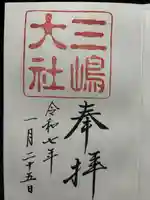 奉拝
三嶋
大社
令和七年
一月二十五日